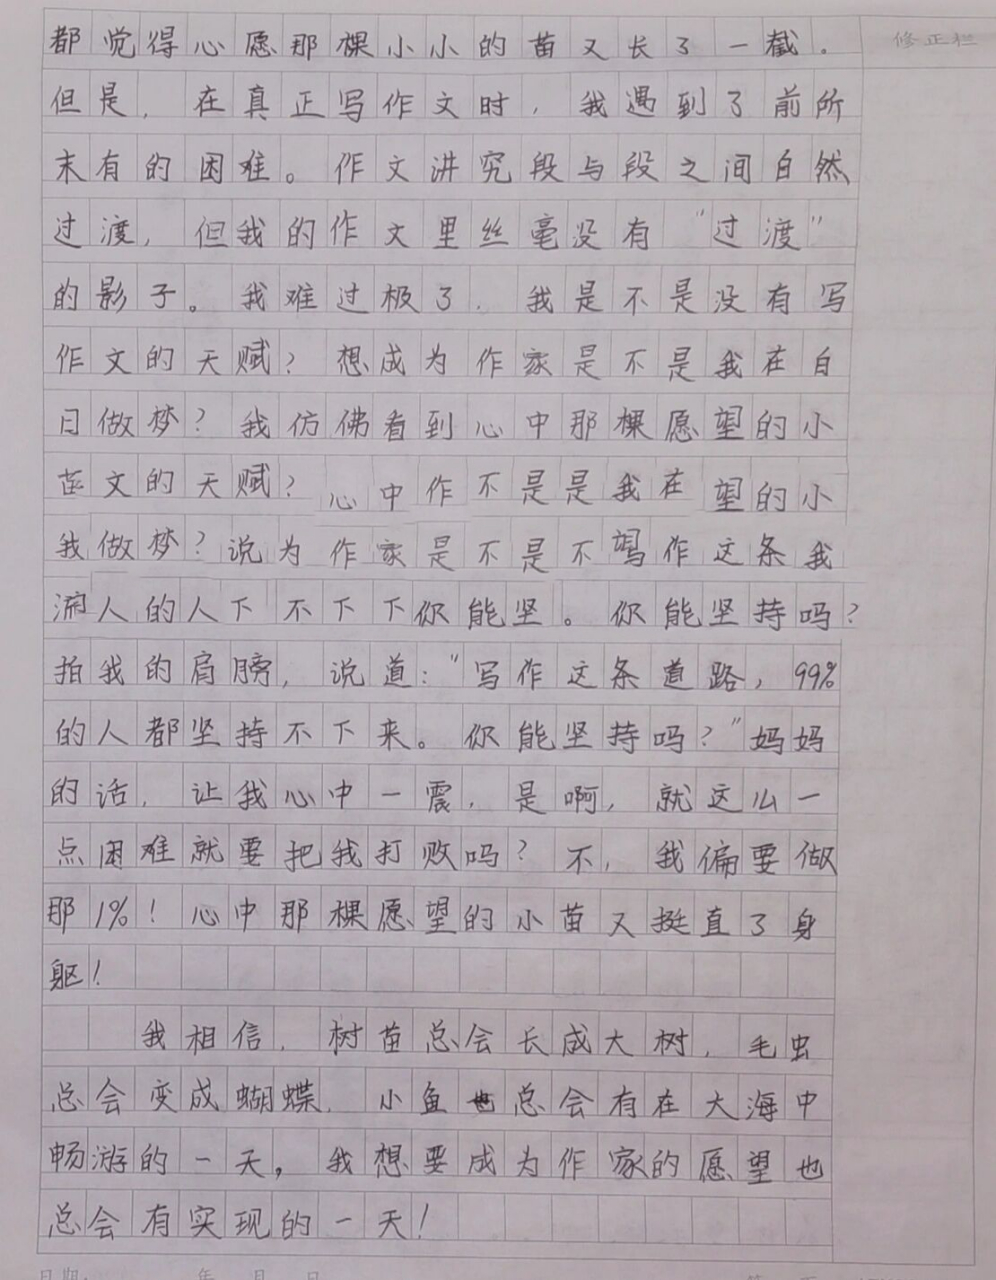 都觉得心愿那棵小小的苗又长了一截.
修正栏
但是,在真正写作文时,我遇到了前所
末有的困难。作文讲究段与段之间自然
过渡,但我的作文里丝毫没有“过渡”
的影子。我难过极了.我是不是没有写
作文的天赋?想成为作家是不是我在白
日做梦?我仿佛看到心中那棵愿望的小
文的天赋?心中作不是是我在望的小
我做梦?说为作家是不是不写作这条我
人的人下不下下你能坚。你能坚持吗?
拍我的肩膀,说道:“写作这条道路,99%
的人都坚持不下来。你能坚持吗?”妈妈
的话,让我心中一震,是啊,就这么一
点困难就要把我打败吗?不,我偏要做
那1%!心中那棵愿望的小苗又挺直了身
躯!
我相信,树苗总会长成大树,毛虫
总会变成蝴蝶,小鱼也总会有在大海中
畅游的一天,我想要成为作家的愿望也
总会有实现的一天!
日期: 年 月 日